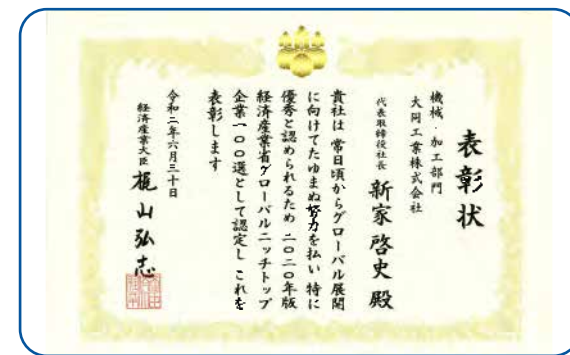 表彰状
機械・加工部門
大同工業株式会社
代表取締役社長 新家啓史 殿
貴社は 常日頃からグローバル展開
に向けてたゆまぬ努力を払い 特に
優秀と認められるため 二〇二〇年版
経済産業省グローバルニッチトップ
企業一〇〇選として認定し これを
表彰します
令和二年六月三十日
経済産業大臣 梶山弘志